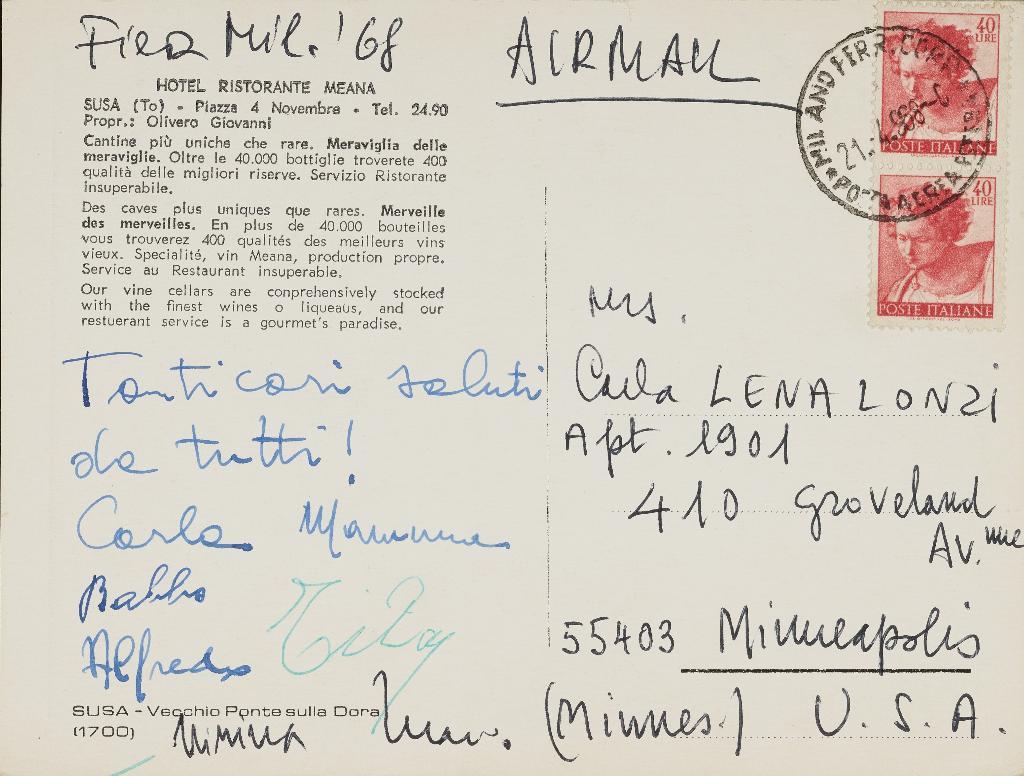 Fiera Mil. '68
AIRMAIL
HOTEL RISTORANTE MEANA
SUSA (To) - Piazza 4 Novembre - Tel. 24.90
Propr.: Olivero Giovanni
Cantine più uniche che rare. Meraviglia delle
meraviglie. Oltre le 40.000 bottiglie troverete 400
qualità delle migliori riserve. Servizio Ristorante
insuperabile.
Des caves plus uniques que rares. Merveille
des merveilles. En plus de 40.000 bouteilles
vous trouverez 400 qualités des meilleurs vins
vieux. Specialité, vin Meana, production propre.
Service au Restaurant insuperable.
Our vine cellars are conprehensively stocked
with the finest wines o liqueaus, and our
restuerant service is a gourmet's paradise.
Tanti cari saluti
da tutti!
Carla Mamma
Babbo
Alfredo
SUSA - Vecchio Ponte sulla Dora
(1700)
40
LIRE
POSTE ITALIANE
40
LIRE
POSTE ITALIANE
MILANO FERR. CORR.
21.4.968
Mrs.
Carla LENA LONZI
Apt. 1901
410 Groveland
Av.nue
55403 Minneapolis
(Minnes.) U.S.A.